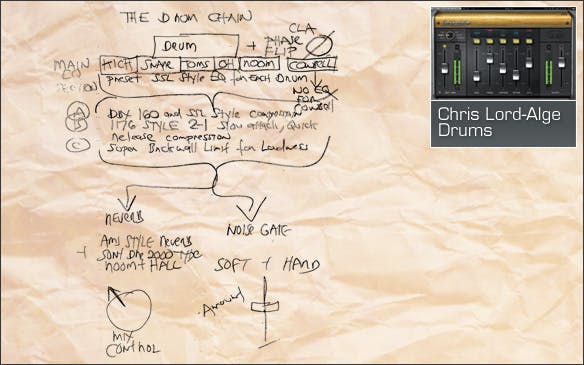 THE DRUM CHAIN
CLA
DRUM
+ PHASE
FLIP
MAIN
EQ
KICK SNARE TOMS OH ROOM COWBELL
preset SSL STYLE EQ for EACH DRUM
NO EQ
FOR
COWBELL
A DBX 160 and SSL Style compression
B 1176 STYLE 2-1 Slow attack, Quick
Release compression
C Super Brickwall Limit for Loudness
REVERB
NOISE GATE
AMS STYLE REVERB
+ SONY DRE 2000
ROOM + HALL
SOFT + HARD
Amount
MIX
CONTROL
Chris Lord-Alge
Drums